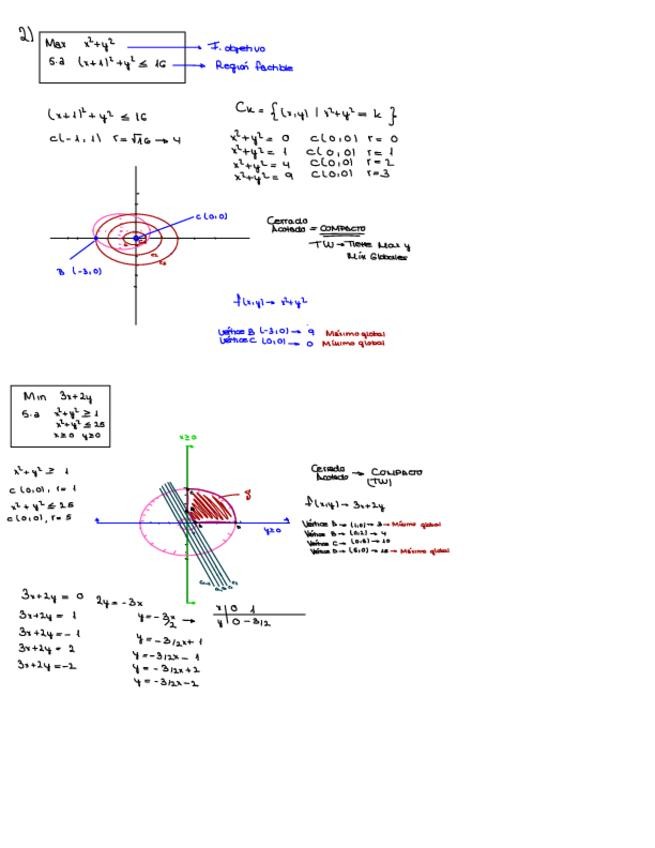 2)
Max x²+y² → F. objetivo
s.a (x+1)²+y² ≤ 16 → Región factible
(x+1)² + y² ≤ 16
c(-1, 1) r = √16 → 4
Ck = { (x,y) / x²+y² = k }
x²+y² = 0 c(0,0) r = 0
x²+y² = 1 c(0,0) r = 1
x²+y² = 4 c(0,0) r = 2
x²+y² = 9 c(0,0) r = 3
C(0,0)
B (-3,0)
Cerrado
Acotado = COMPACTO
TW → Tiene Max y
Mín Globales
f(x,y) → x²+y²
Vértice B (-3,0) → 9 Máximo global
Vértice C (0,0) → 0 Mínimo global
Min 3x+2y
s.a x²+y² ≥ 1
x²+y² ≤ 25
x≥0 y≥0
x≥0
y≥0
x²+y² ≥ 1
c(0,0), r = 1
x²+y² ≤ 25
c(0,0), r = 5
Cerrado
Acotado → COMPACTO
(TW)
f(x,y) → 3x+2y
Vértice A → (1,0) → 3 → Mínimo global
Vértice D → (5,0) → 15 → Máximo global
3x+2y = 0 2y = -3x
3x+2y = 1
3x+2y = -1
3x+2y = 2
3x+2y = -2
y = -3x/2 →
x | 0 1
y | 0 -3/2
y = -3/2x + 1
y = -3/2x - 1
y = -3/2x + 2
y = -3/2x - 2